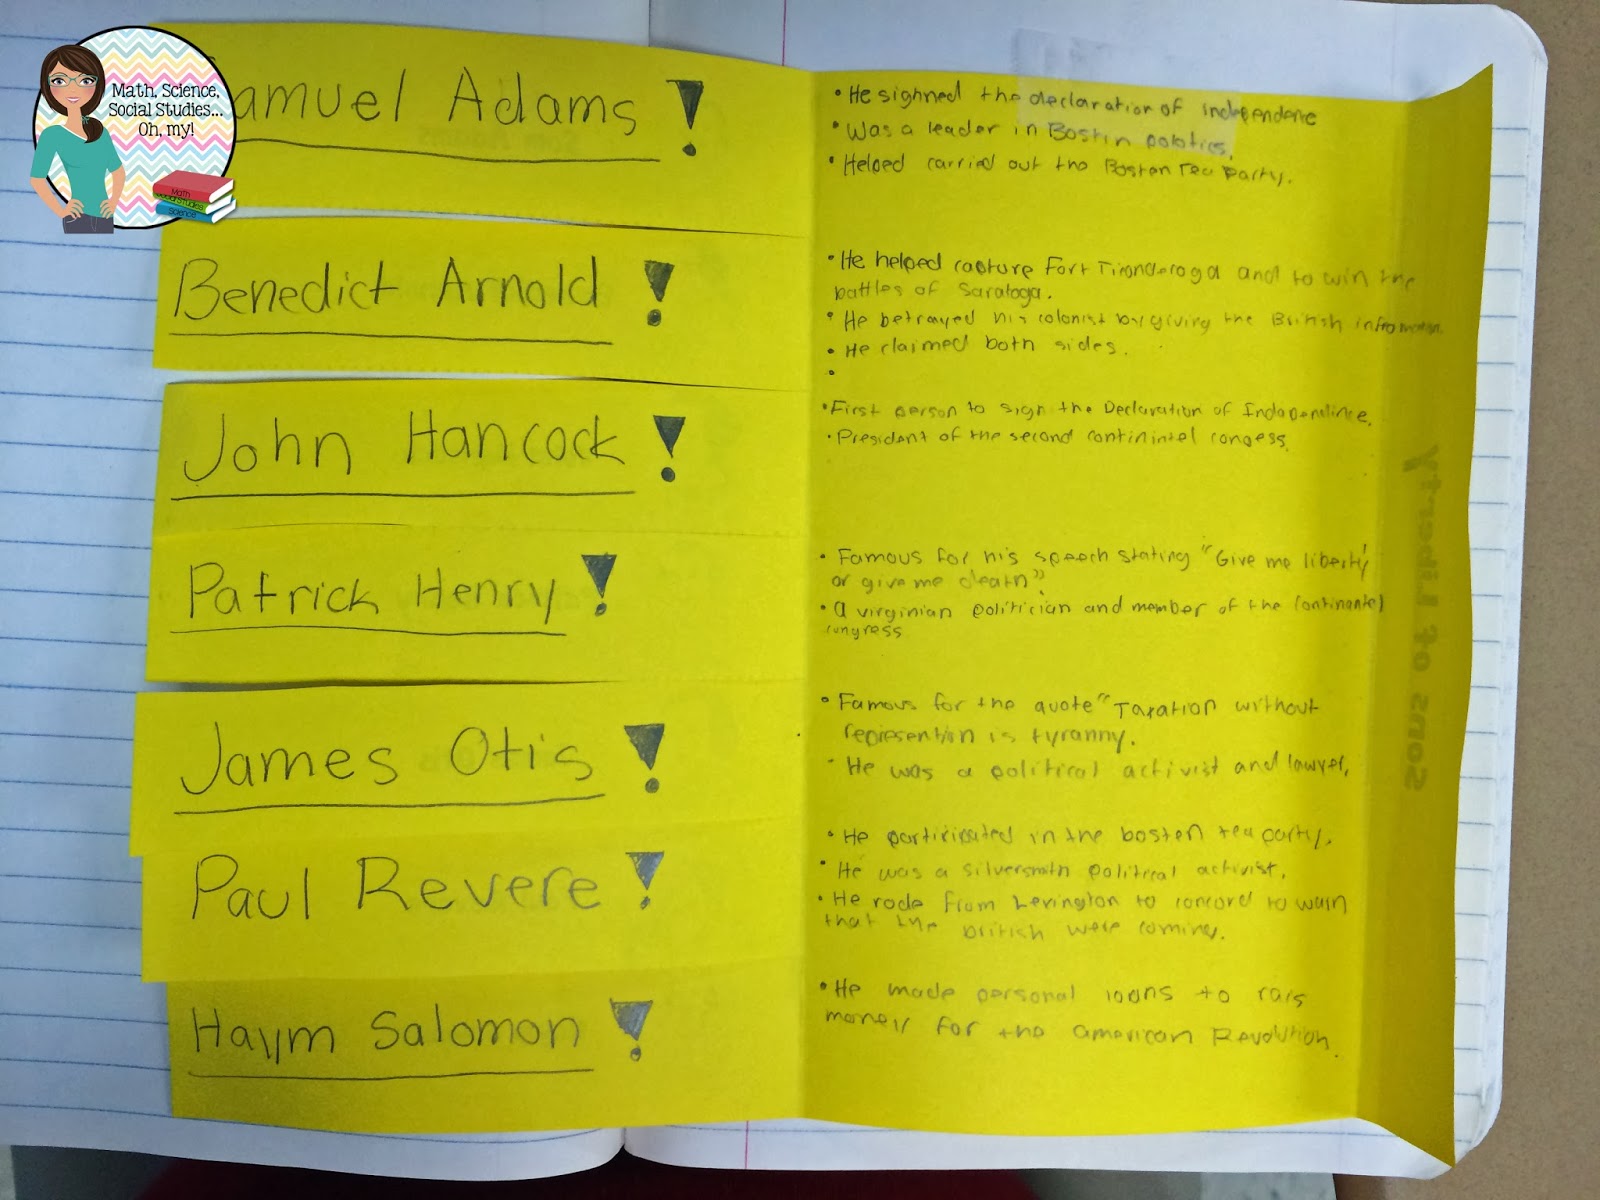 Math, Science,
Social Studies...
Oh, my!
Math
Social Studies
Science
amuel Adams !
• He sighned the declaration of independence
• Was a leader in Bostin polotics.
• Helped carried out the Boston Tea Party.
Benedict Arnold !
• He helped capture Fort Ticonderoga and to win the
battles of Saratoga.
• He betrayed his colonist by giving the British information.
• He claimed both sides.
•
John Hancock !
• First person to sign the Declaration of Independince.
• President of the second continintel congess.
Patrick Henry !
• Famous for his speech stating "Give me liberty
or give me death"
• A virginian politician and member of the Continantel
congress
James Otis !
• Famous for the quote "Taxation without
represention is tyranny.
• He was a political activist and lawyer.
Paul Revere !
• He participated in the boston tea party.
• He was a silversmith political activist.
• He rode from Lexington to concord to warn
that the british were coming.
Haym Salomon !
• He made personal loans to rais
money for the american Revolution.
Sons of Liberty